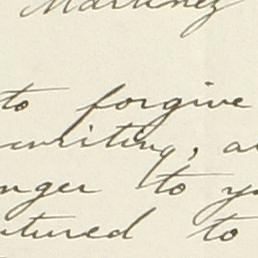 Martinez
to forgive
writing, a
nger to y
tured to